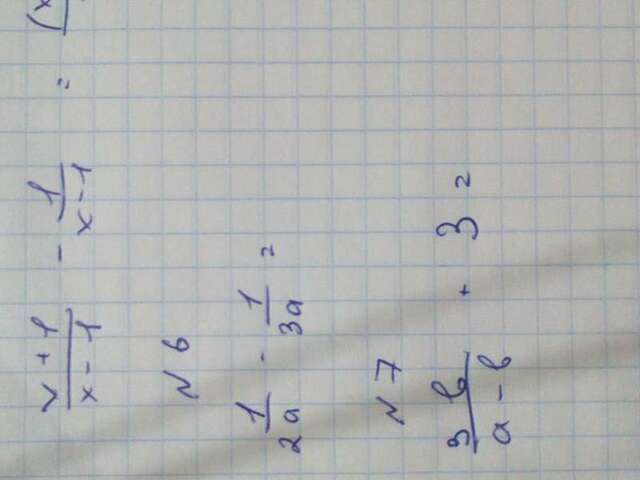 x+1/x-1 - 1/x-1 = (x
№6
1/2a - 1/3a =
№7
3b/a-b + 3 =